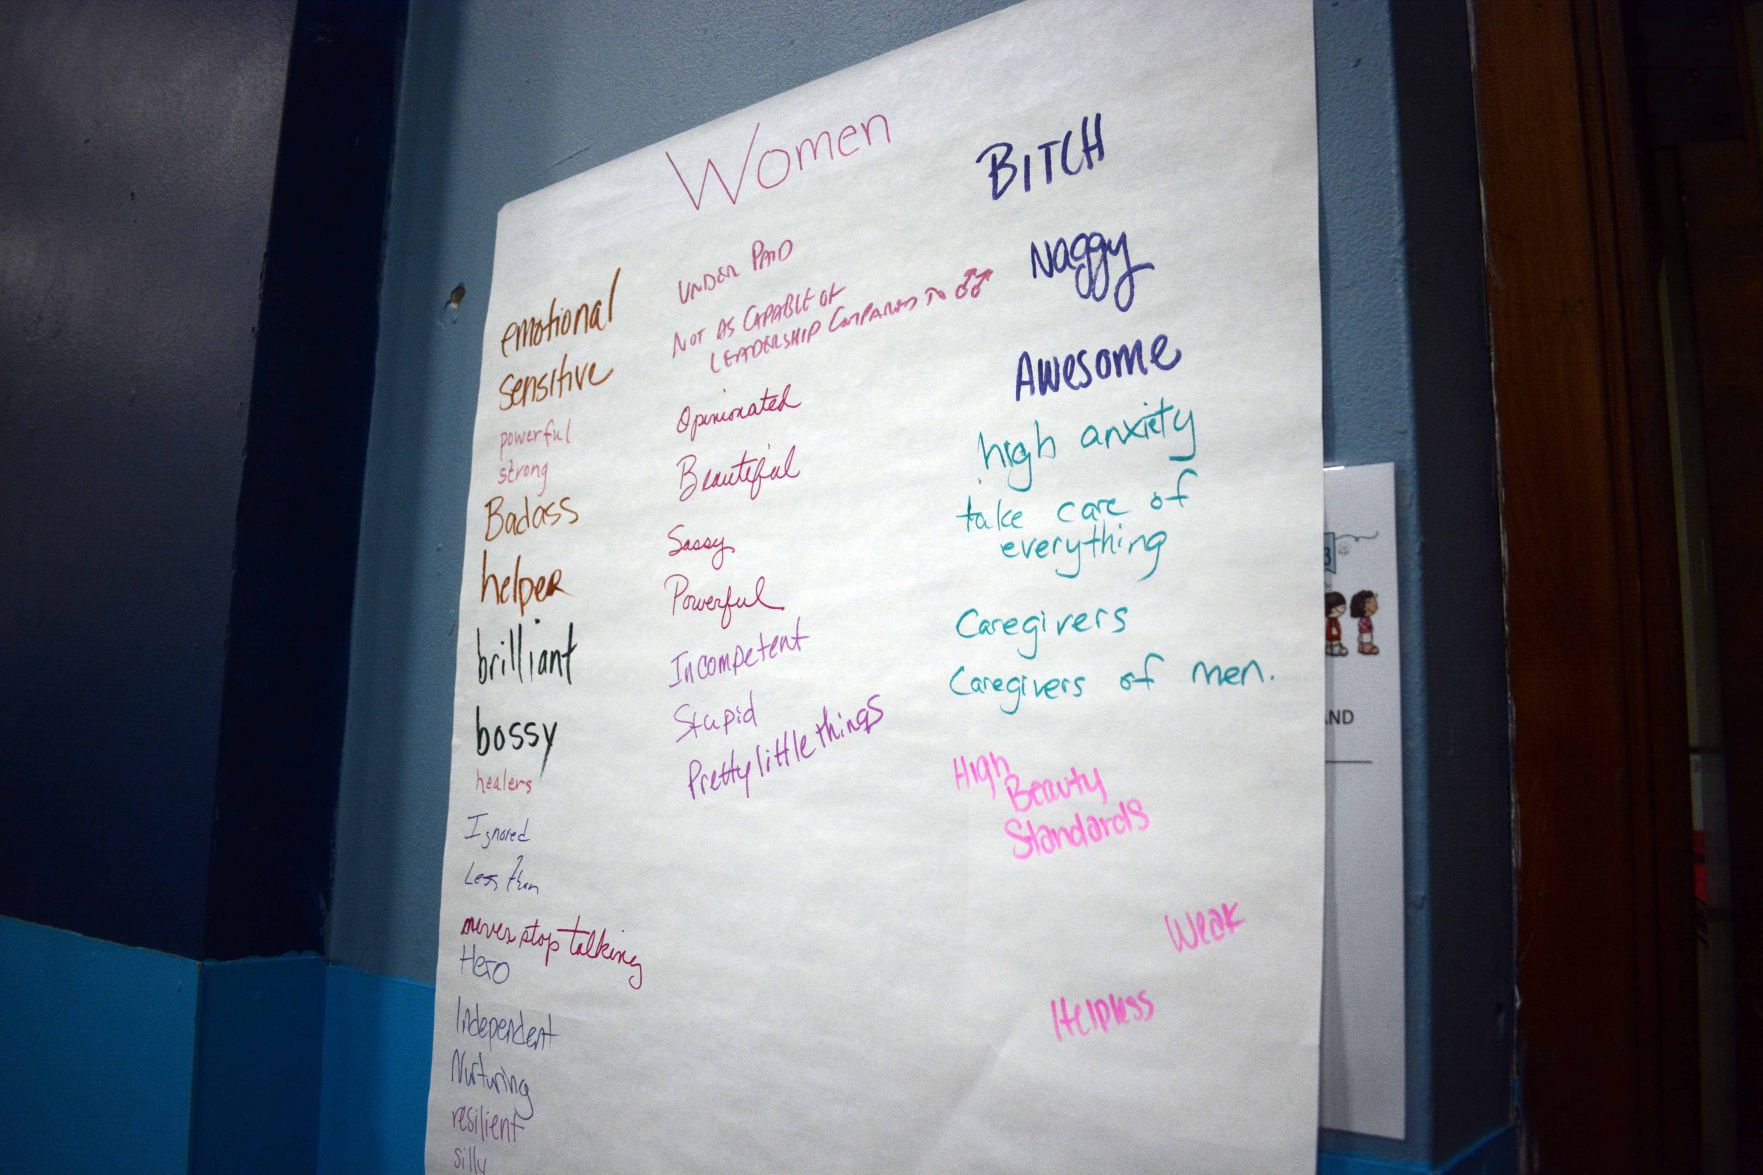 Women
emotional
sensitive
powerful
strong
Badass
helper
brilliant
bossy
healers
Ignored
Less than
never stop talking
Hero
Independent
Nurturing
resilient
silly
UNDER PAID
NOT AS CAPABLE OF
LEADERSHIP COMPARED TO ♂♂
Opinionated
Beautiful
Sassy
Powerful
Incompetent
Stupid
Pretty little things
BITCH
Naggy
AWESOME
high anxiety
take care of
everything
Caregivers
Caregivers of men.
High
Beauty
Standards
Weak
Helpless
AND